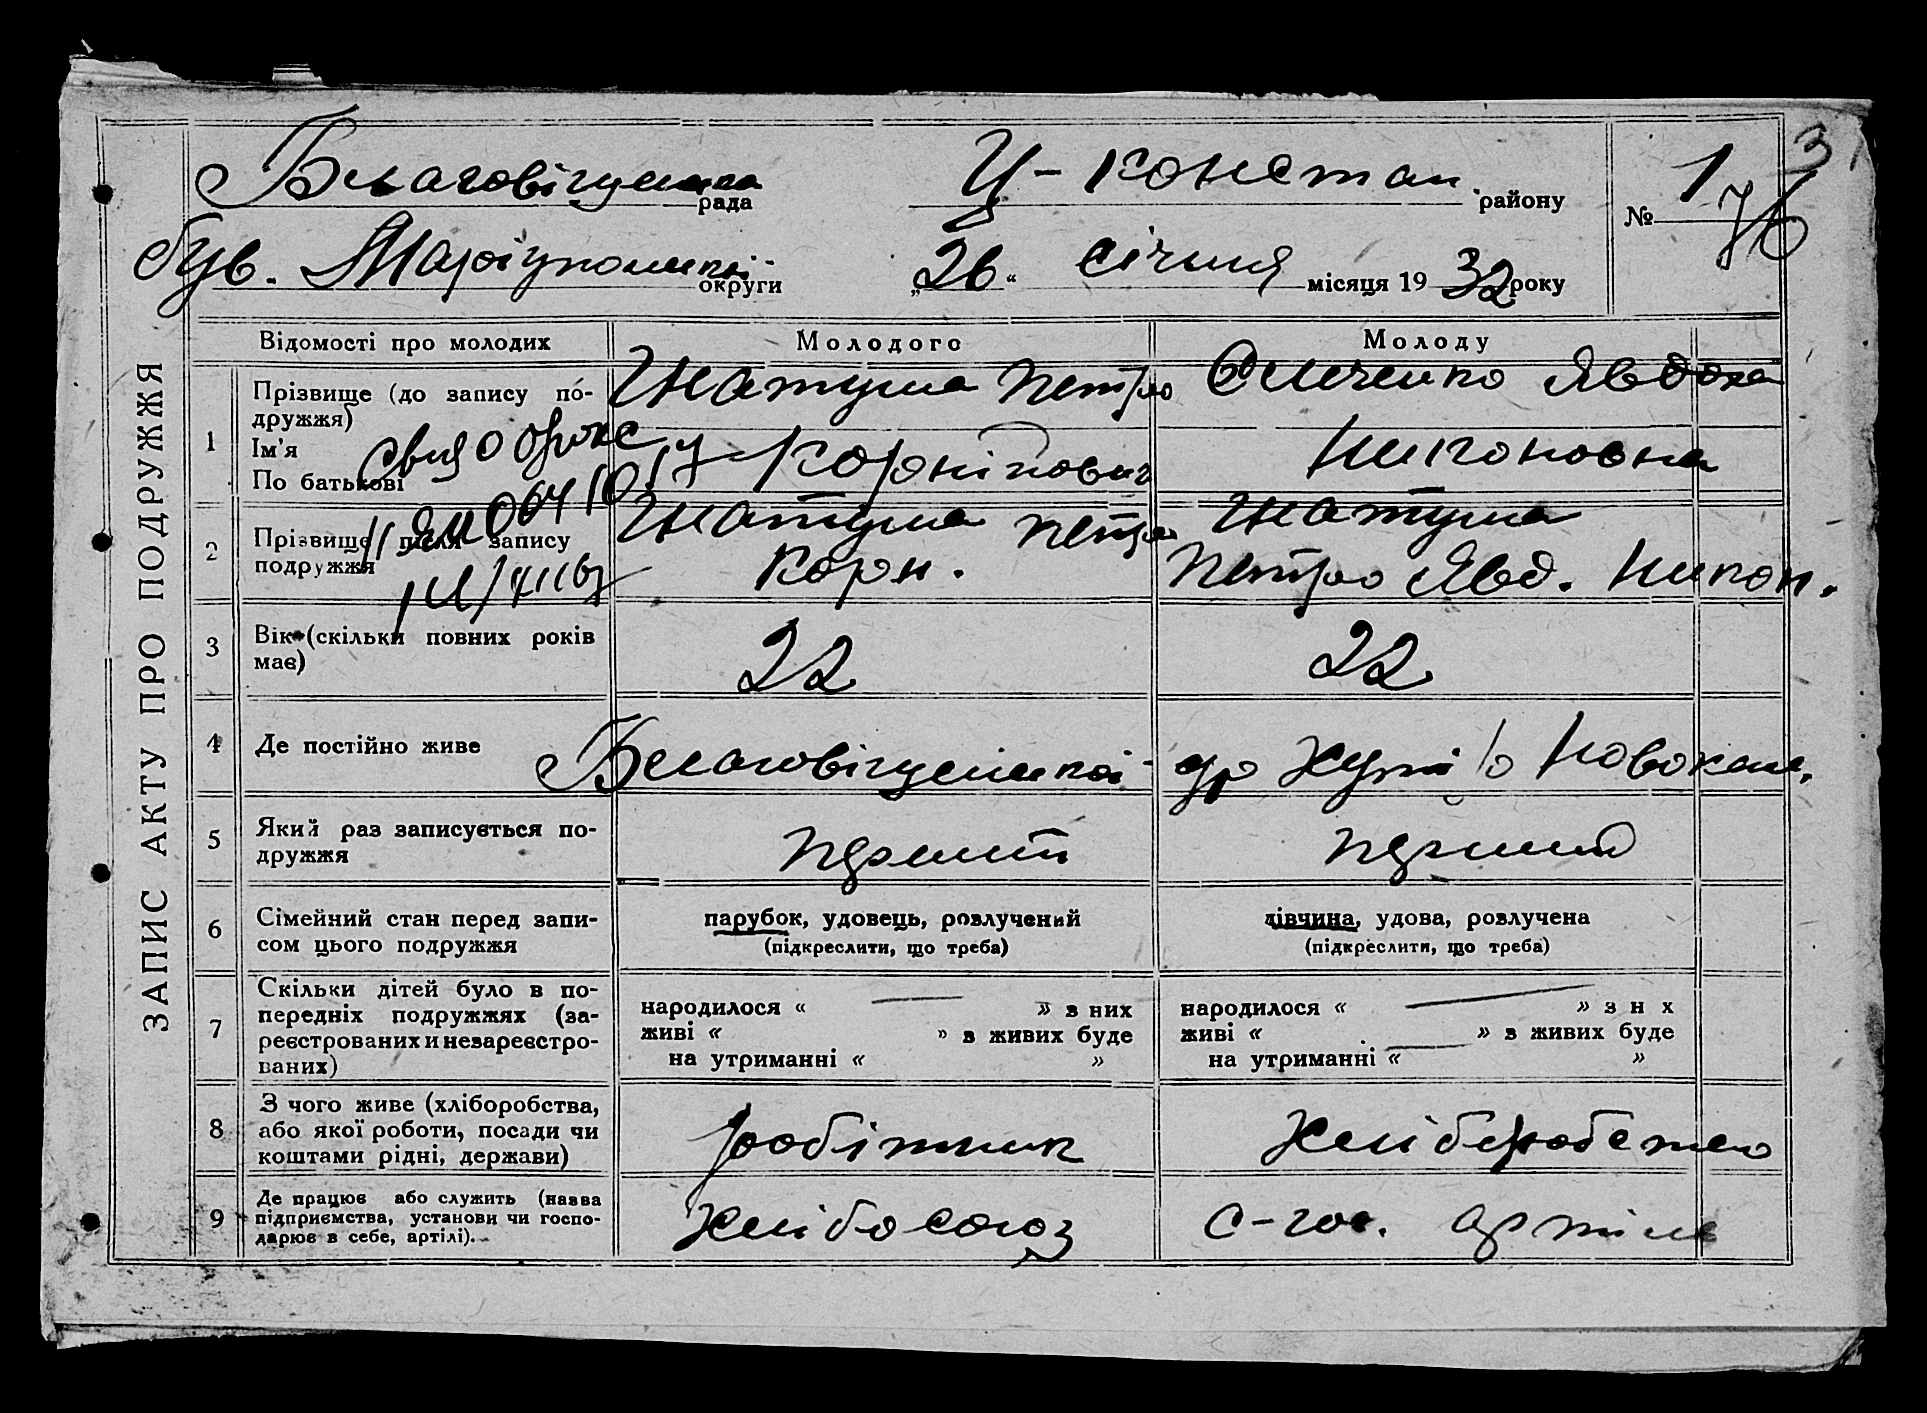 ЗАПИС АКТУ ПРО ПОДРУЖЖЯ
Благовіщенська рада
Ц-Констан. району
№ 1
3
76
був. Маріупольської округи
„26“ січня місяця 1932 року
Відомості про молодих
Молодого
Молоду
1
Прізвище (до запису по-
дружжя)
Ім'я
По батькові
Петро
Явдоха
Корнійович
Никоновна
2
Прізвище після запису
подружжя
Петро
Корн.
Явд. Никон.
3
Вік (скільки повних років
має)
22
22
4
Де постійно живе
Благовіщенської
5
Який раз записується по-
дружжя
перший
перший
6
Сімейний стан перед запи-
сом цього подружжя
парубок, удовець, розлучений
(підкреслити, що треба)
дівчина, удова, розлучена
(підкреслити, що треба)
7
Скільки дітей було в по-
передніх подружжях (за-
реєстрованих и незареєстро-
ваних)
народилося « — » з них
живі « » в живих буде
на утриманні « »
народилося « — » з н х
живі « » в живих буде
на утриманні « — »
8
З чого живе (хліборобства,
або якої роботи, посади чи
коштами рідні, держави)
робітник
9
Де працює або служить (назва
підприємства, установи чи госпо-
дарює в себе, артілі).
Хлібосоюз
с-гос. артіль